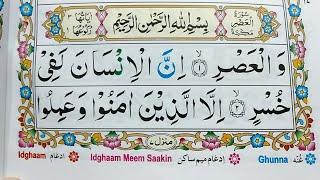 سُوْرَةُ الْعَصْرِ مَكِّيَّةٌ
بِسْمِ اللّٰهِ الرَّحْمٰنِ الرَّحِيْمِ
وَالْعَصْرِ ۙ﴿۱﴾ اِنَّ الْاِنْسَانَ لَفِیْ
خُسْرٍ ۙ﴿۲﴾ اِلَّا الَّذِیْنَ اٰمَنُوْا وَعَمِلُوا
منزل ۷
Idghaam ادغام Idghaam Meem Saakin ادغام میم ساکن Ghunna غنّہ